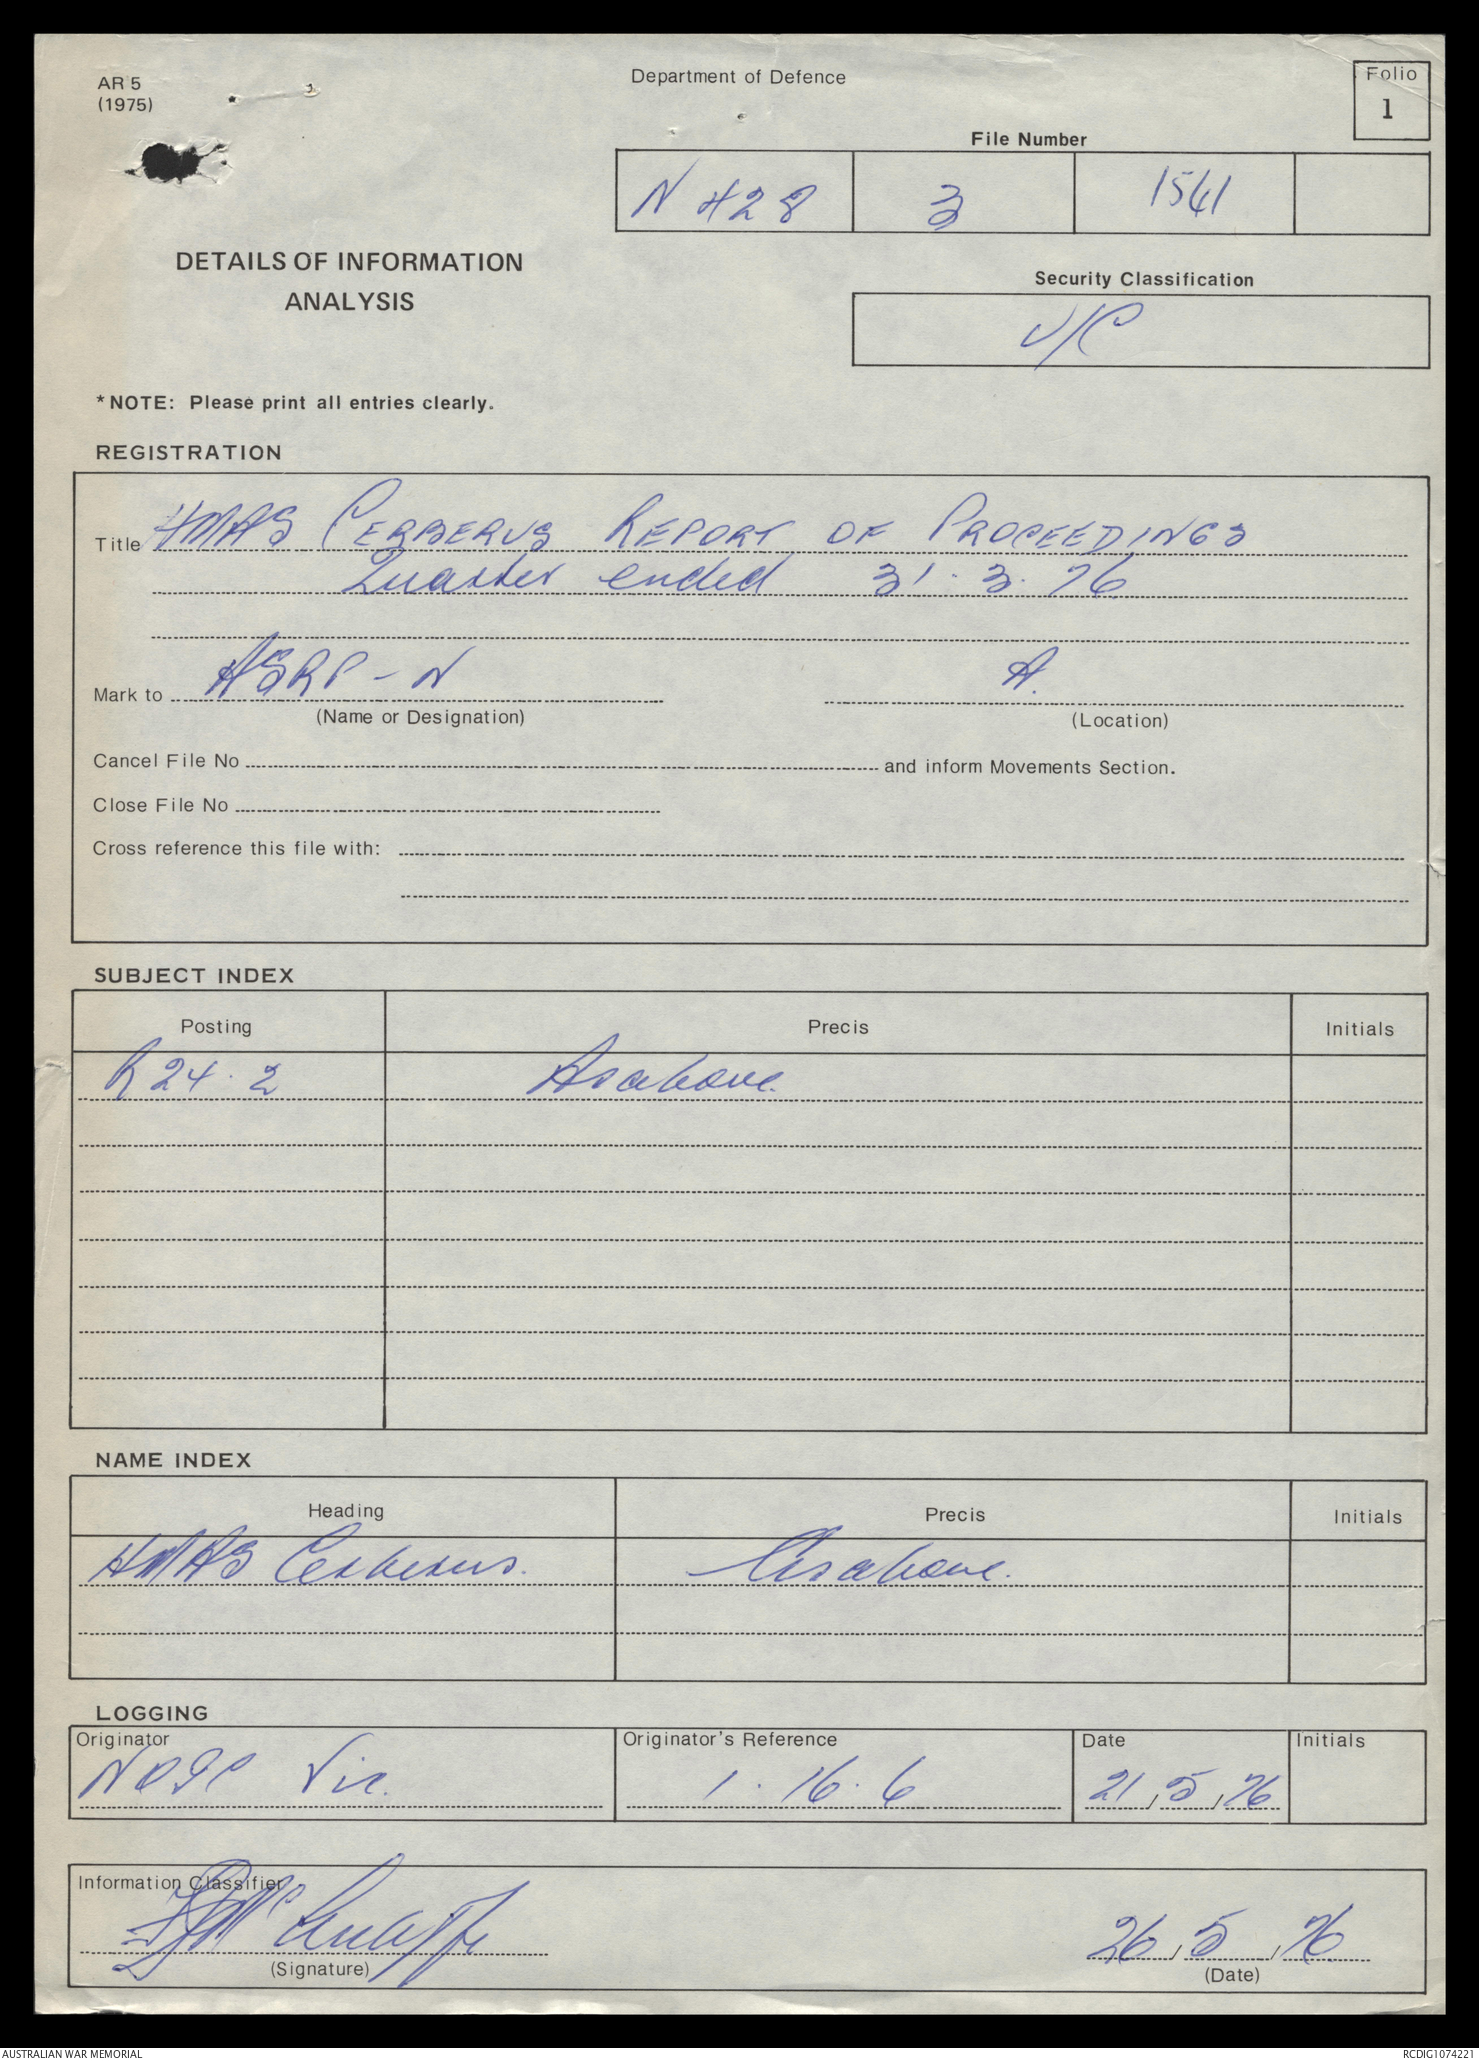 AR 5
(1975)
Department of Defence
Folio
1
File Number
N 428 3 1541
DETAILS OF INFORMATION
ANALYSIS
Security Classification
U/C
*NOTE: Please print all entries clearly.
REGISTRATION
Title HMAS CERBERUS REPORT OF PROCEEDINGS
Quarter ended 31.3.76
Mark to ASRP-N A.
(Name or Designation) (Location)
Cancel File No and inform Movements Section.
Close File No
Cross reference this file with:
SUBJECT INDEX
Posting Precis Initials
R24.2 As above.
NAME INDEX
Heading Precis Initials
HMAS Cerberus. As above.
LOGGING
Originator Originator's Reference Date Initials
NOIC Vic. 1.16.6 21/5/76
Information Classifier
26/5/76
(Signature) (Date)
AUSTRALIAN WAR MEMORIAL RCDIG1074221